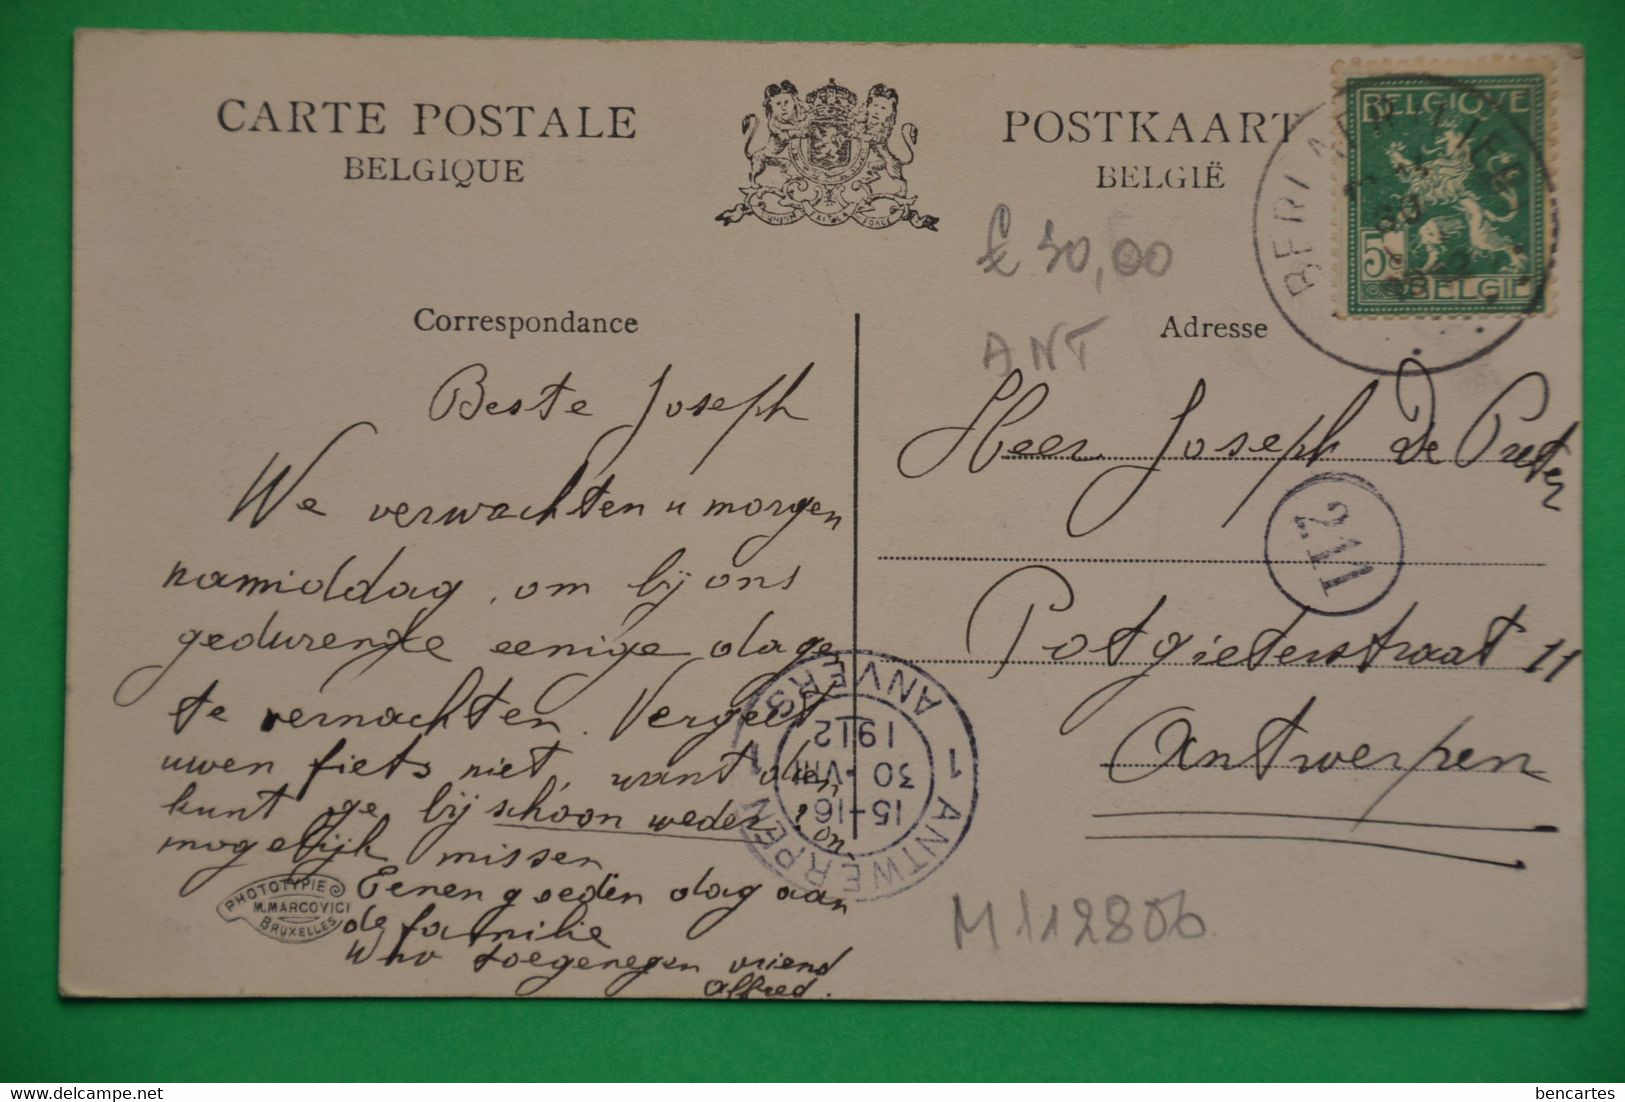 CARTE POSTALE
BELGIQUE
POSTKAART
BELGIË
L'UNION FAIT LA FORCE
BELGIQUE
5c
BELGIË
BERLAER (LIER)
1912
€ 30,00
ANT
Correspondance
Adresse
Beste Joseph
We verwachten u morgen
namiddag, om bij ons
gedurende eenige dage
te vernachten. Vergeet
uwen fiets niet, want dien
kunt ge bij schoon weder
mogelijk missen
Eenen goeden dag aan
de familie
Uw toegenegen vriend
Alfred.
Heer Joseph De Preter
211
Potgieterstraat 11
Antwerpen
1 ANTWERPEN 1
ANVERS
15-16
30 VIII
1912
PHOTOTYPIE
M. MARCOVICI
BRUXELLES
M112806
delcampe.net
bencartes